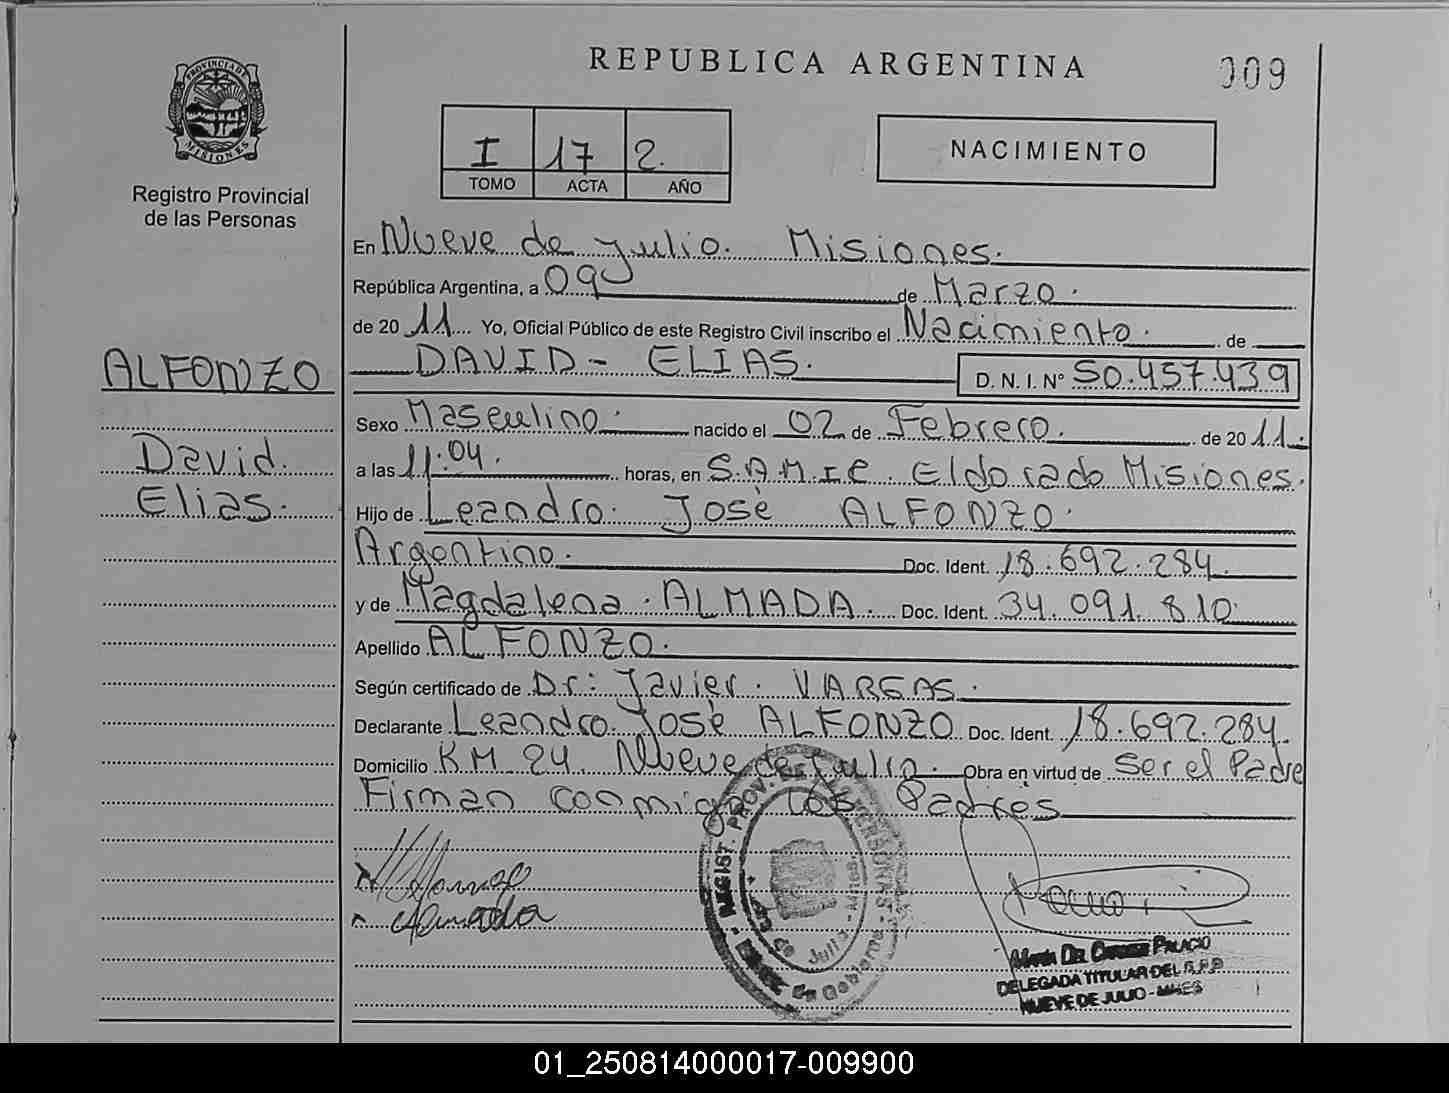 REPUBLICA ARGENTINA
009
PROVINCIA DE MISIONES
Registro Provincial
de las Personas
I 17 2.
TOMO ACTA AÑO
NACIMIENTO
En Nueve de Julio. Misiones.
República Argentina, a 09 de Marzo.
de 20 11 Yo, Oficial Público de este Registro Civil inscribo el Nacimiento. de
DAVID - ELIAS.
D. N. I. N° 50.457.439
ALFONZO
David.
Elias.
Sexo Masculino. nacido el 02 de Febrero. de 20 11.
a las 11:04. horas, en S.A.M.I.C. Eldorado Misiones.
Hijo de Leandro. José ALFONZO.
Argentino. Doc. Ident. 18.692.284.
y de Magdalena. ALMADA. Doc. Ident. 34.091.810.
Apellido ALFONZO.
Según certificado de Dr: Javier. VARGAS.
Declarante Leandro José ALFONZO Doc. Ident. 18.692.284.
Domicilio KM 24. Nueve de Julio. Obra en virtud de Ser el Padre
Firman conmigo los Padres
Almada
REGIST. PROV. DE LAS PERSONAS
de Julio
de Gobierno
MARÍA DEL CARMEN PALACIO
DELEGADA TITULAR DEL R.P.P
NUEVE DE JULIO - MNES
01_250814000017-009900